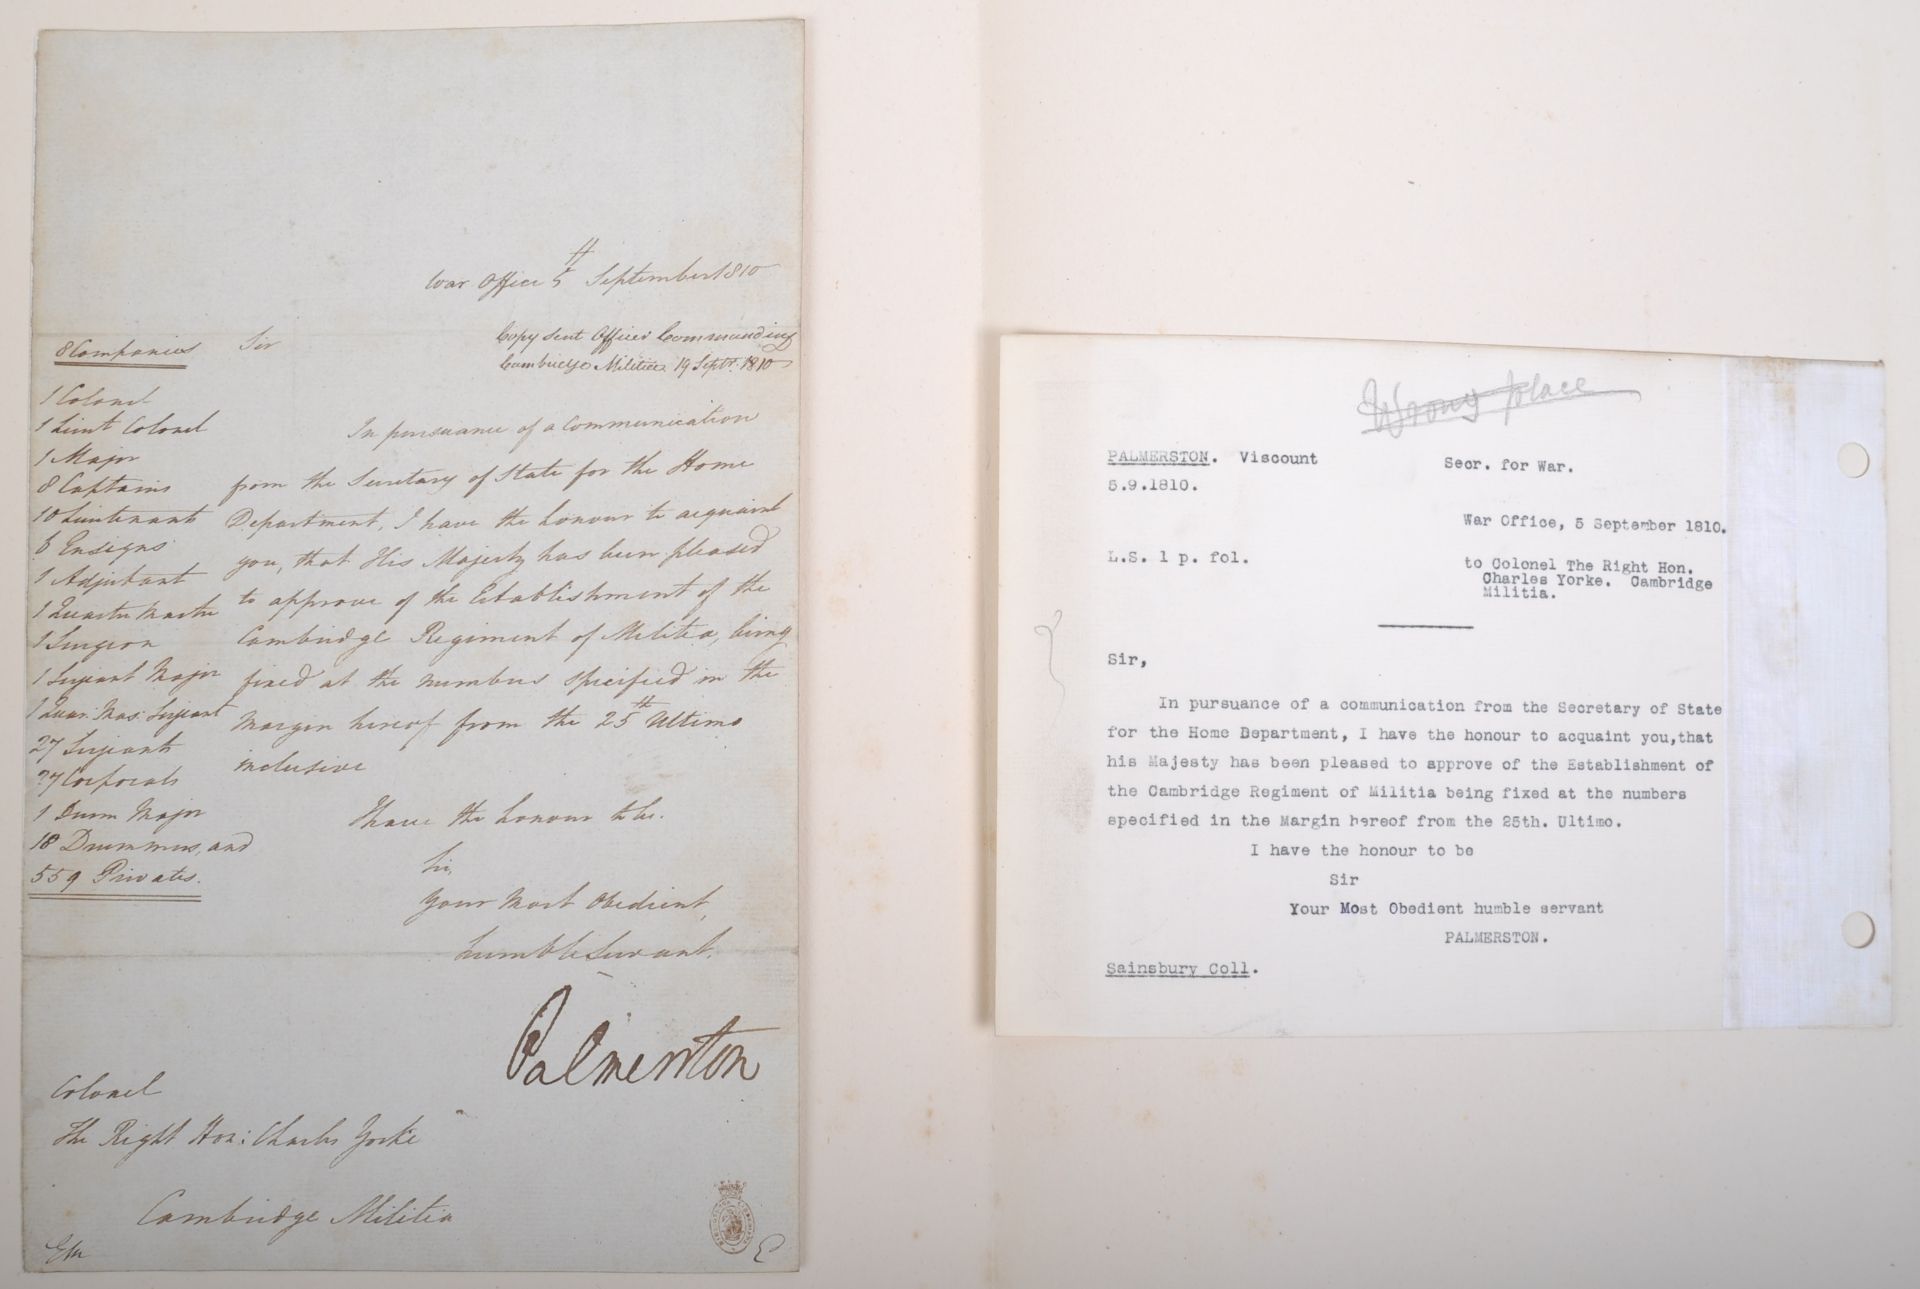 War Office 5th September 1810
Copy sent Officer Commanding
Cambridge Militia 19 Septr. 1810
8 Companies
1 Colonel
1 Lieut Colonel
1 Major
8 Captains
10 Lieutenants
6 Ensigns
1 Adjutant
1 Quarter Master
1 Surgeon
1 Serjeant Major
1 Quar: Mas: Serjeant
27 Serjeants
27 Corporals
1 Drum Major
18 Drummers, and
559 Privates.
Sir
In pursuance of a Communication
from the Secretary of State for the Home
Department, I have the honour to acquaint
you, that His Majesty has been pleased
to approve of the Establishment of the
Cambridge Regiment of Militia, being
fixed at the numbers specified in the
Margin hereof from the 25th Ultimo
inclusive
I have the honour to be.
Sir,
Your Most Obedient,
humble Servant.
Palmerston
Colonel
The Right Hon: Charles Yorke
Cambridge Militia
Wrong place
PALMERSTON. Viscount
Secr. for War.
5.9.1810.
War Office, 5 September 1810.
L.S. 1 p. fol.
to Colonel The Right Hon.
Charles Yorke. Cambridge
Militia.
Sir,
In pursuance of a communication from the Secretary of State
for the Home Department, I have the honour to acquaint you,that
his Majesty has been pleased to approve of the Establishment of
the Cambridge Regiment of Militia being fixed at the numbers
specified in the Margin hereof from the 25th. Ultimo.
I have the honour to be
Sir
Your Most Obedient humble servant
PALMERSTON.
Sainsbury Coll.